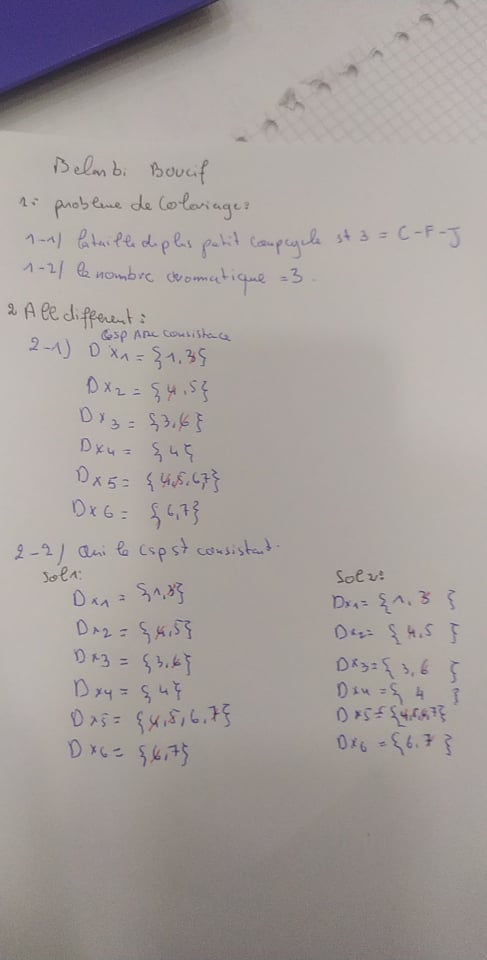 Belarbi Boucif
1: probleme de Coloriage:
1-1) la taille du plus petit coupecycle st 3 = C-F-J
1-2/ le nombre cromatique = 3.
2 All different:
Csp Arc consistance
2-1) Dx1 = {1,3}
Dx2 = {4,5}
Dx3 = {3,6}
Dx4 = {4}
Dx5 = {4,5,6,7}
Dx6 = {6,7}
2-2/ Oui le Csp st consistant.
Sol1:
Dx1 = {1,3}
Dx2 = {4,5}
Dx3 = {3,6}
Dx4 = {4}
Dx5 = {4,5,6,7}
Dx6 = {6,7}
Sol2:
Dx1 = {1,3}
Dx2 = {4,5}
Dx3 = {3,6}
Dx4 = {4}
Dx5 = {4,5,6,7}
Dx6 = {6,7}